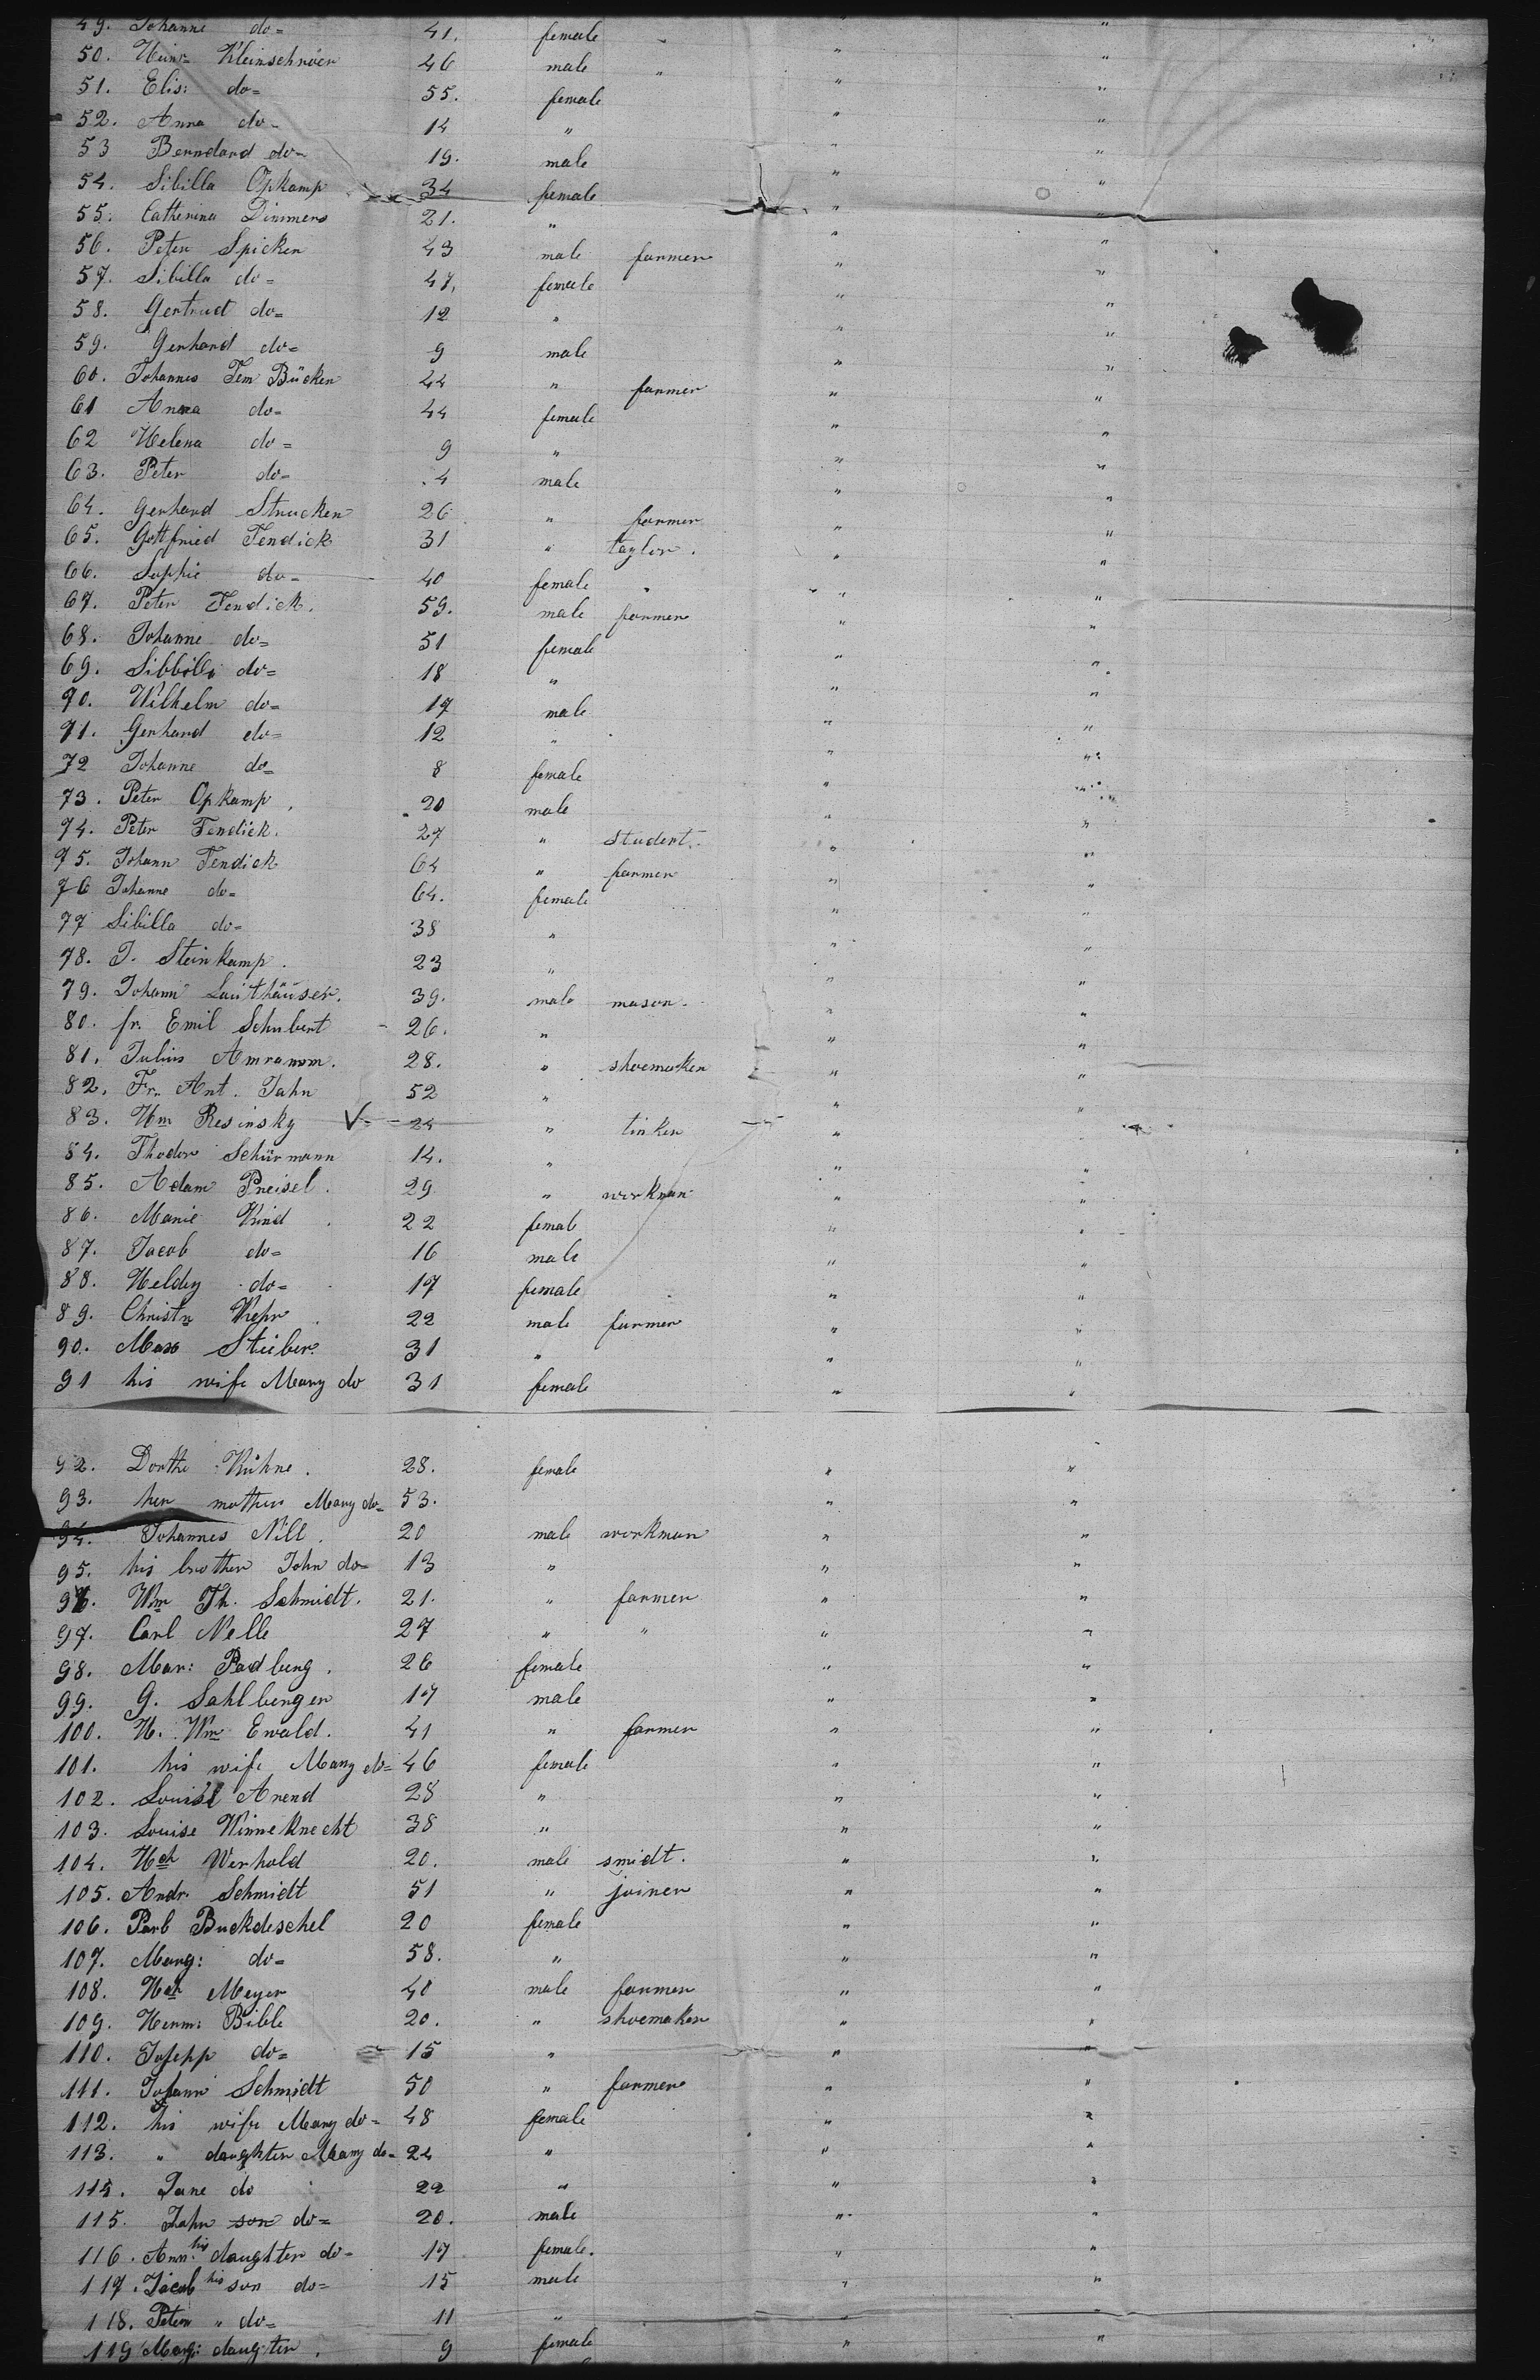 49. Johanne do= 41. female " "
50. Heinr Kleinschnöer 46 male " " "
51. Elis: do= 55. female " "
52. Anna do- 14 " " "
53 Berndard do- 19. male " "
54. Sibilla Opkamp 34 female " "
55. Catherina Dimmers 21. " " "
56. Peter Spicker 43 male farmer " "
57. Sibilla do= 47. female " "
58. Gertrud do= 12 " " "
59. Gerhard do= 9 male " "
60. Johannes Tem Bücken 44 " farmer " "
61 Anna do= 44 female " "
62 Helena do= 9 " " "
63. Peter do= 4 male " "
64. Gerhard Strucken 26 " farmer " "
65. Gottfried Tendick 31 " taylor. " "
66. Sophie do= 40 female " "
67. Peter Tendick. 59. male farmer " "
68. Johanne do= 51 female " "
69. Sibbilla do= 18 " " "
70. Wilhelm do= 17 male " "
71. Gerhard do= 12 " " "
72 Johanne do= 8 female " "
73. Peter Opkamp. 20 male " "
74. Peter Tendick. 27 " student. " "
75. Johann Tendick 64 " farmer " "
76 Johanne do= 64. female " "
77 Sibilla do= 38 " " "
78. J. Steinkamp. 23 " " "
79. Johann Lauthäuser. 39. male mason. " "
80. fr. Emil Schubert 26. " " "
81. Julius Amramom. 28. " shoemaker " "
82. Fr. Ant. Jahn 52 " " "
83. Hm Resinsky V 24 " tinker " "
84. Theodor Schürmann 14. " " "
85. Adam Preisel. 29 " workman " "
86. Marie Kind. 22 female " "
87. Jacob do= 16 male " "
88. Heldey do= 17 female " "
89. Christn Kehr. 22 male farmer " "
90. Max Stieber. 31 " " "
91 his wife Mary do 31 female " "
92. Dorthe Kühne. 28. female " "
93. her mother Mary do= 53. " "
94. Johannes Nill. 20 male workman " "
95. his brother John do= 13 " " "
96. Wm Th. Schmidt. 21. " farmer " "
97. Carl Nelle 27 " " " "
98. Mar: Padberg. 26 female " "
99. G. Sahlberger 17 male " "
100. H. Wm Ewald. 41 " farmer " "
101. his wife Mary do= 46 female " "
102. Louise Arend 28 " " "
103. Louise Winneknecht 38 " " "
104. Hch Werhold 20. male smidt. " "
105. Andr. Schmidt 51 " joiner " "
106. Barb Buckdeschel 20 female " "
107. Marg: do= 58. " " "
108. Hch Meyer 40 male farmer " "
109. Herm: Bible 20. " shoemaker " "
110. Josepp do= 15 " " "
111. Johann Schmidt 50 " farmer " "
112. his wife Mary do= 48 female " "
113. " daughter Mary do= 24 " " "
114. Jane do 22 " " "
115. John son do= 20. male " "
116. Ann: his daughter do= 17 female. " "
117. Jacob his son do= 15 male " "
118. Peter " do= 11 " " "
119 Marg: daugter. 9 female " "